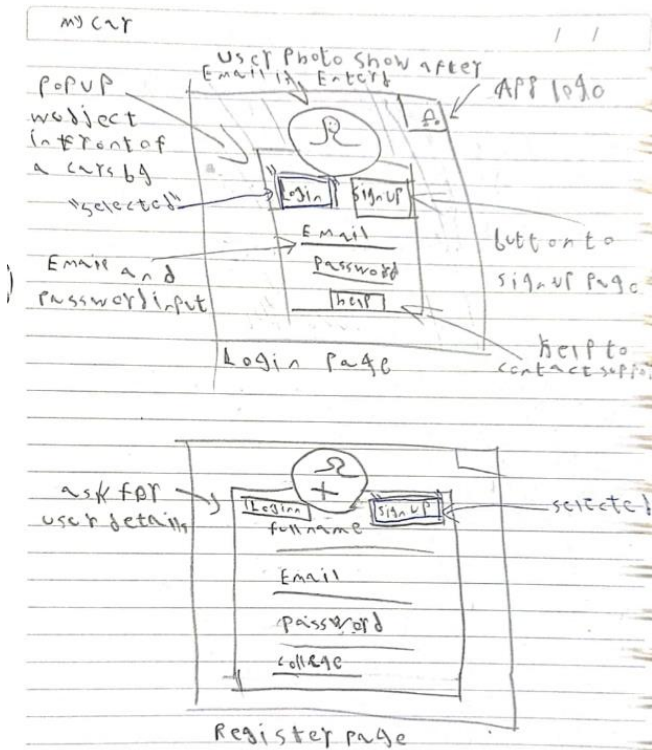 my car
/ /
User Photo Show after
Email is Enterd
App logo
PoPuP
wobject
infront of
a cars bg
"selected"
Login
signup
Email
Password
help
Email and
Password input
button to
signup page
help to
contact suppo
Login Page
ask for
user details
Loginn
signup
selected
fullname
Email
Password
college
Register page